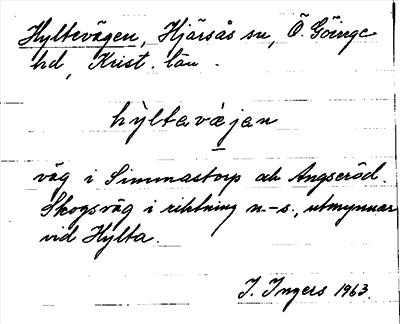 Hyltevägen, Hjärsås sn, Ö. Göinge
hd, Krist. län.
hỳltavæ̀jan
väg i Simmastorp och Angseröd.
Skogsväg i riktning n.-s., utmynnar
vid Hylta.
I. Ingers 1963.